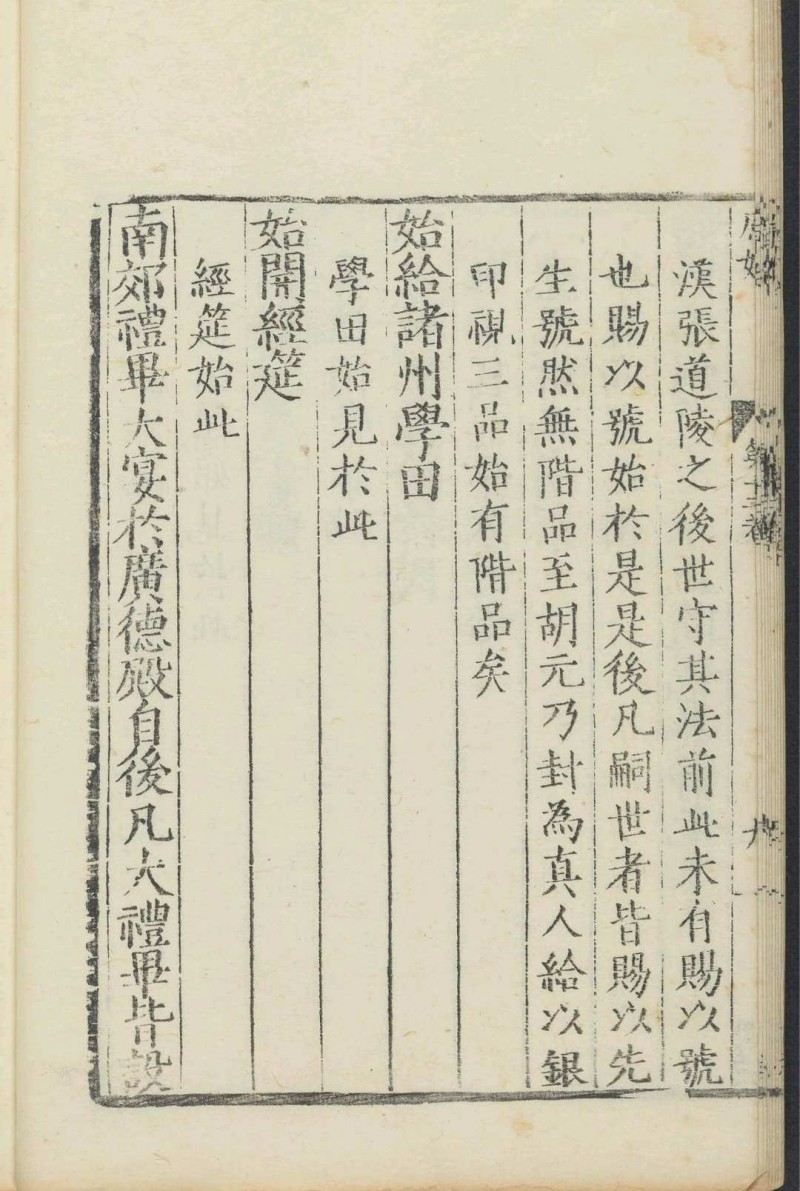 漢張道陵之後世守其法前此未有賜以號
也賜以號始於是是後凡嗣世者皆賜以先
生號然無階品至胡元乃封為真人給以銀
印視三品始有階品矣
始給諸州學田
學田始見於此
始開經筵
經筵始此
南郊禮畢大宴於廣德殿自後凡大禮畢皆設